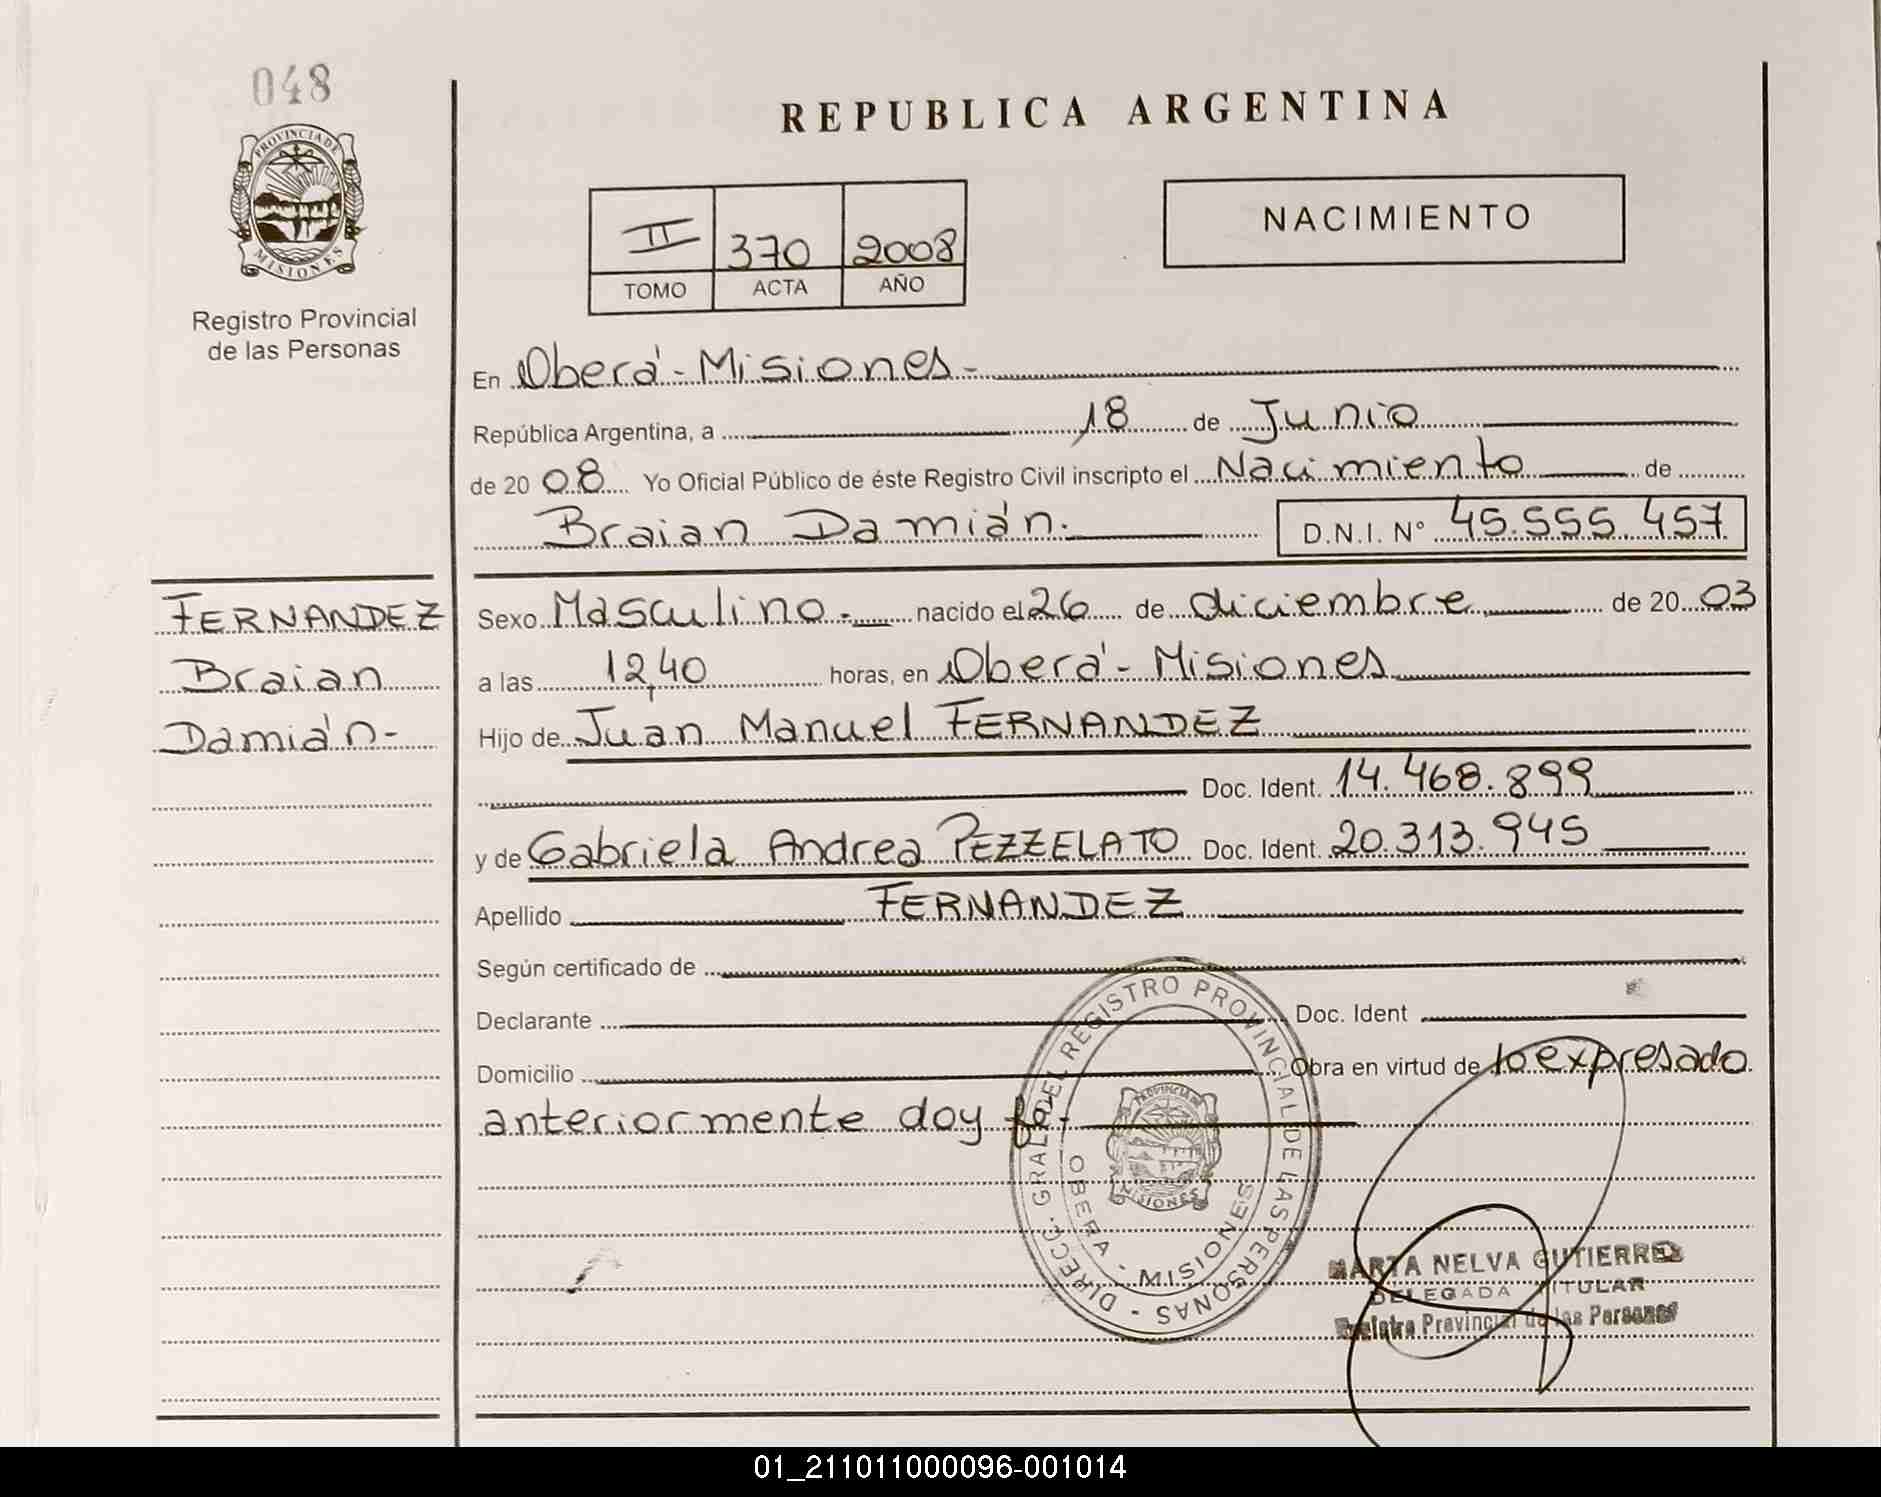 048
PROVINCIA DE
MISIONES
Registro Provincial
de las Personas
REPUBLICA ARGENTINA
II 370 2008
TOMO ACTA AÑO
NACIMIENTO
En Oberá - Misiones -
República Argentina, a 18 de Junio
de 20 08 Yo Oficial Público de éste Registro Civil inscripto el Nacimiento de
Braian Damián. D.N.I. N° 45.555.457
FERNANDEZ
Braian
Damián-
Sexo Masculino.- nacido el 26 de diciembre de 20 03
a las 12,40 horas, en Oberá - Misiones
Hijo de Juan Manuel FERNANDEZ
Doc. Ident. 14.468.899
y de Gabriela Andrea PEZZELATO Doc. Ident. 20.313.945
Apellido FERNANDEZ
Según certificado de
Declarante Doc. Ident
Domicilio Obra en virtud de lo expresado
anteriormente doy fe.-
DIRECC. GRAL. DEL REGISTRO PROVINCIAL DE LAS PERSONAS -
PROVINCIA DE
MISIONES
OBERA - MISIONES
MARTA NELVA GUTIERREZ
DELEGADA TITULAR
Registro Provincial de las Personas
01_211011000096-001014